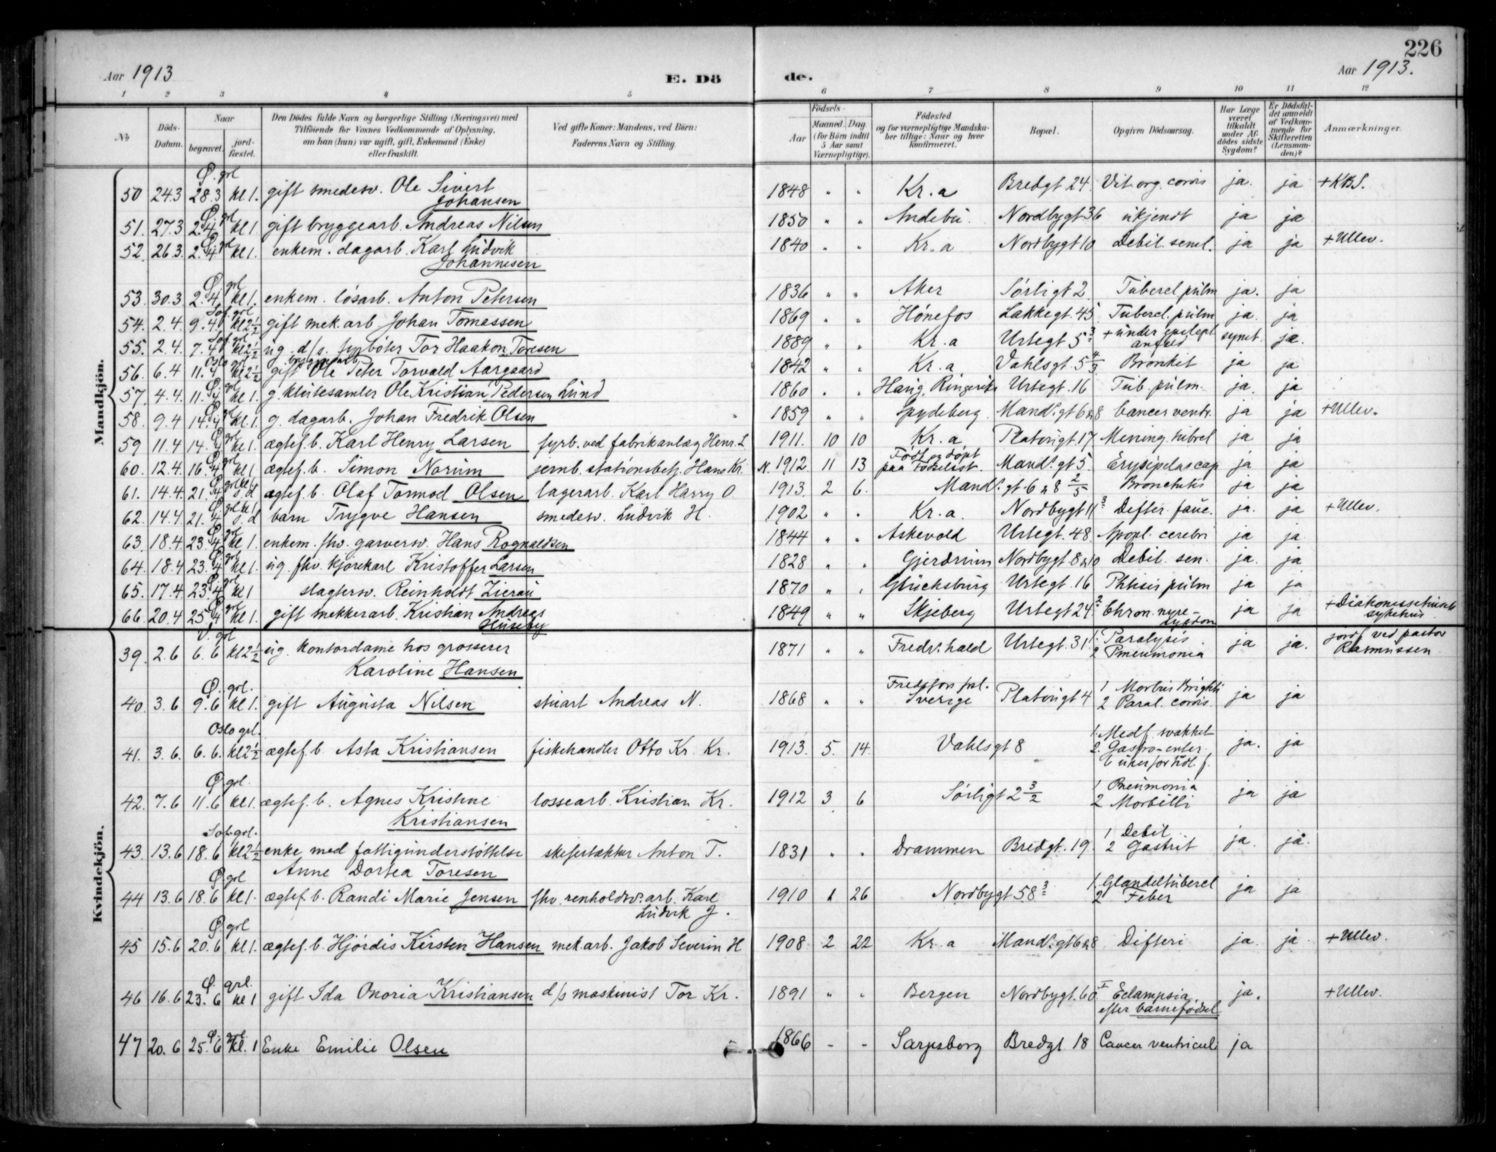 226
Aar 1913
E. Dö
de.
Aar 1913.
1 2 3 4 5 6 7 8 9 10 11 12
No
Döds-Datum.
Naar
begravet.
jord-fæstet.
Den Dödes fulde Navn og borgerlige Stilling (Næringsvei) med
Tilföiende for Voxnes Vedkommende af Oplysning,
om han (hun) var ugift, gift, Enkemand (Enke)
eller fraskilt.
Ved gifte Koner: Mandens, ved Börn:
Faderens Navn og Stilling.
Födsels-
Aar
Maaned Dag
(for Börn indtil 5 Aar samt Værnepligtige).
Födested
og for værnepligtige Mandskaber tillige: Naar og hvor konfirmeret.
Bopæl.
Opgiven Dödsaarsag.
Har Læge været tilkaldt under Afdödes sidste Sygdom?
Er Dödsfaldet anmeldt af Vedkommende for Skifteretten (Lensmanden)?
Anmærkninger.
Mandkjön.
50 24.3 28.3 Ø. grl kl 1. gift smedesv. Ole Sivert Johansen 1848 " " Kr.a Bredgt 24 Vit. org. cordis ja. ja +KBS.
51. 27.3 2.4 kl 1 gift bryggearb. Andreas Nilsen 1850 " " Andebu Nordbygt 36 ukjendt ja ja
52. 26.3. 2.4 kl 1. enkem. dagarb. Karl Ludvik Johannesen 1840 " " Kr.a Nordbygt 10 Debil. senil. ja ja +Ullev.
53. 30.3 2.4 Ø grl kl 1. enkem. løsarb. Anton Petersen 1836 " " Aker Sørligt 2 Tubercl. pulm ja. ja
54. 2.4. 9.4 kl 2½ gift mek.arb Johan Tomassen 1869 " " Hønefos Lakkegt 45 Tubercl. pulm ja. ja
55. 2.4. 7.4 kl 2½ ug. d/s. fyrbøter Tor Haakon Toresen 1889 " " Kr.a Urtegt 5 + under epilept. anfald synet. ja.
56. 6.4 11.4 kl 2½ gift Ole Peter Torvald Aargaard 1842 " " Kr.a Vahlsgt 5 Bronkit ja ja
57. 4.4. 11.4 kl 1. g. kluteasamler Ole Kristian Pedersen Lund 1860 " " Haug Ringerike Urtegt. 16 Tub. pulm. ja. ja
58. 9.4 14.4 kl 1. g. dagarb. Johan Fredrik Olsen 1859 " " Spydeberg Mandlsgt 6 & 8 Cancer ventr. ja ja +Ullev.
59 11.4 14.4 kl 1. ægtef. b. Karl Henry Larsen fyrb. ved fabrikanlæg Henr. L 1911. 10 10 Kr.a Platougt 17 Mening. tubrcl ja ja
60. 12.4. 16.4 kl 1 ægtef. b. Simon Norum jernb. stationsbetj. Hans Kr. N. 1912 11 13 Født og døpt paa Fødselsst. Mandlsgt 5 Erysipelas cap ja ja
61. 14.4. 21.4 ægtef. b. Olaf Tormod Olsen lagerarb. Karl Harry O 1913. 2 6. Mandlsgt. 6 & 8 2/5 Bronchitis ja ja
62. 14.4 21.4 barn Trygve Hansen smedesv. Ludvik H. 1902 " " Kr.a Nordbygt 11 Difteri fauc. ja. ja +Ullev.
63. 18.4 23.4 kl 1. enkem. fhv. garversv. Hans Rognaldsen 1844 " " Askevold Urtegt. 48 Apopl. cerebri ja ja
64. 18.4 23.4 kl 1. ug. fhv. kjørekarl Kristoffer Larsen 1828 " " Gjerdrum Nordbygt 8 & 10 Debil. sen. ja ja
65. 17.4 23.4 kl 1 slagtersv. Reinholdt Zierau 1870 " " Glücksburg Urtegt 16 Phtisis pulm ja ja
66. 20.4 25.4 kl 1. gift mekkerarb. Kristian Andreas Huseby 1849 " " Skjeberg Urtegt 24 Chron. nyre-sykdom ja ja +Diakonissehusets sykehus
Kvindekjön.
39. 2.6 6.6 V. grl kl 2½ ug. kontordame hos grosserer Karoline Hansen 1871 " " Fredr.hald Urtegt. 31 1 Paralysis 2 Pneumonia ja ja. jordf. ved pastor Rasmussen
40. 3.6 9.6 Ø. grl. kl 1. gift Augusta Nilsen stuart Andreas N. 1868 " " Sverige Platougt 4 1 Morbus Brightii 2 Paral. cordis. ja ja
41. 3.6. 6.6. Oslo grl. kl 2½ ægtef. b. Asta Kristiansen fiskehandler Otto Kr. Kr. 1913. 5. 14. Vahlsgt 8 1. Medf. svakhet 2. Gastro-enter. 6 uker for tidl. f. ja. ja
42. 7.6 11.6 Ø grl. kl 1. ægtef. b. Agnes Kristine Kristiansen lossearb. Kristian Kr. 1912 3 6 Sørligt 2 3/2 1 Pneumonia 2 Morbilli ja ja
43. 13.6 18.6 Sof. grl. kl 2½ enke med fattigunderstøttelse Anne Dortea Toresen skifertækker Anton T. 1831 " " Drammen Bredgt. 19. 1 Debil. 2 Gastrit ja. ja.
44 13.6 18.6 Ø grl kl 1. ægtef. b. Randi Marie Jensen fhv. renholdsv.arb. Karl Ludvik J. 1910 1 26 Nordbygt 58 1. Glandeltubercl 2 Feber ja ja
45 15.6 20.6 Ø grl kl 1. ægtef. b. Hjørdis Kirsten Hansen mek.arb. Jakob Severin H 1908. 2 22 Kr.a Mandlsgt 6 & 8 Difteri ja. ja. +Ullev.
46 16.6 23.6 Ø grl. kl 1 gift Ida Onoria Kristiansen d/s maskinist Tor Kr. 1891 " " Bergen Nordbygt. 60 Eclampsia efter barnefødsel ja. +Ullev.
47 20.6 25.6 Ø grl kl. 1 Enke Emilie Olsen 1866 - - Sarpsborg Bredgt 18 Cancer ventriculi ja